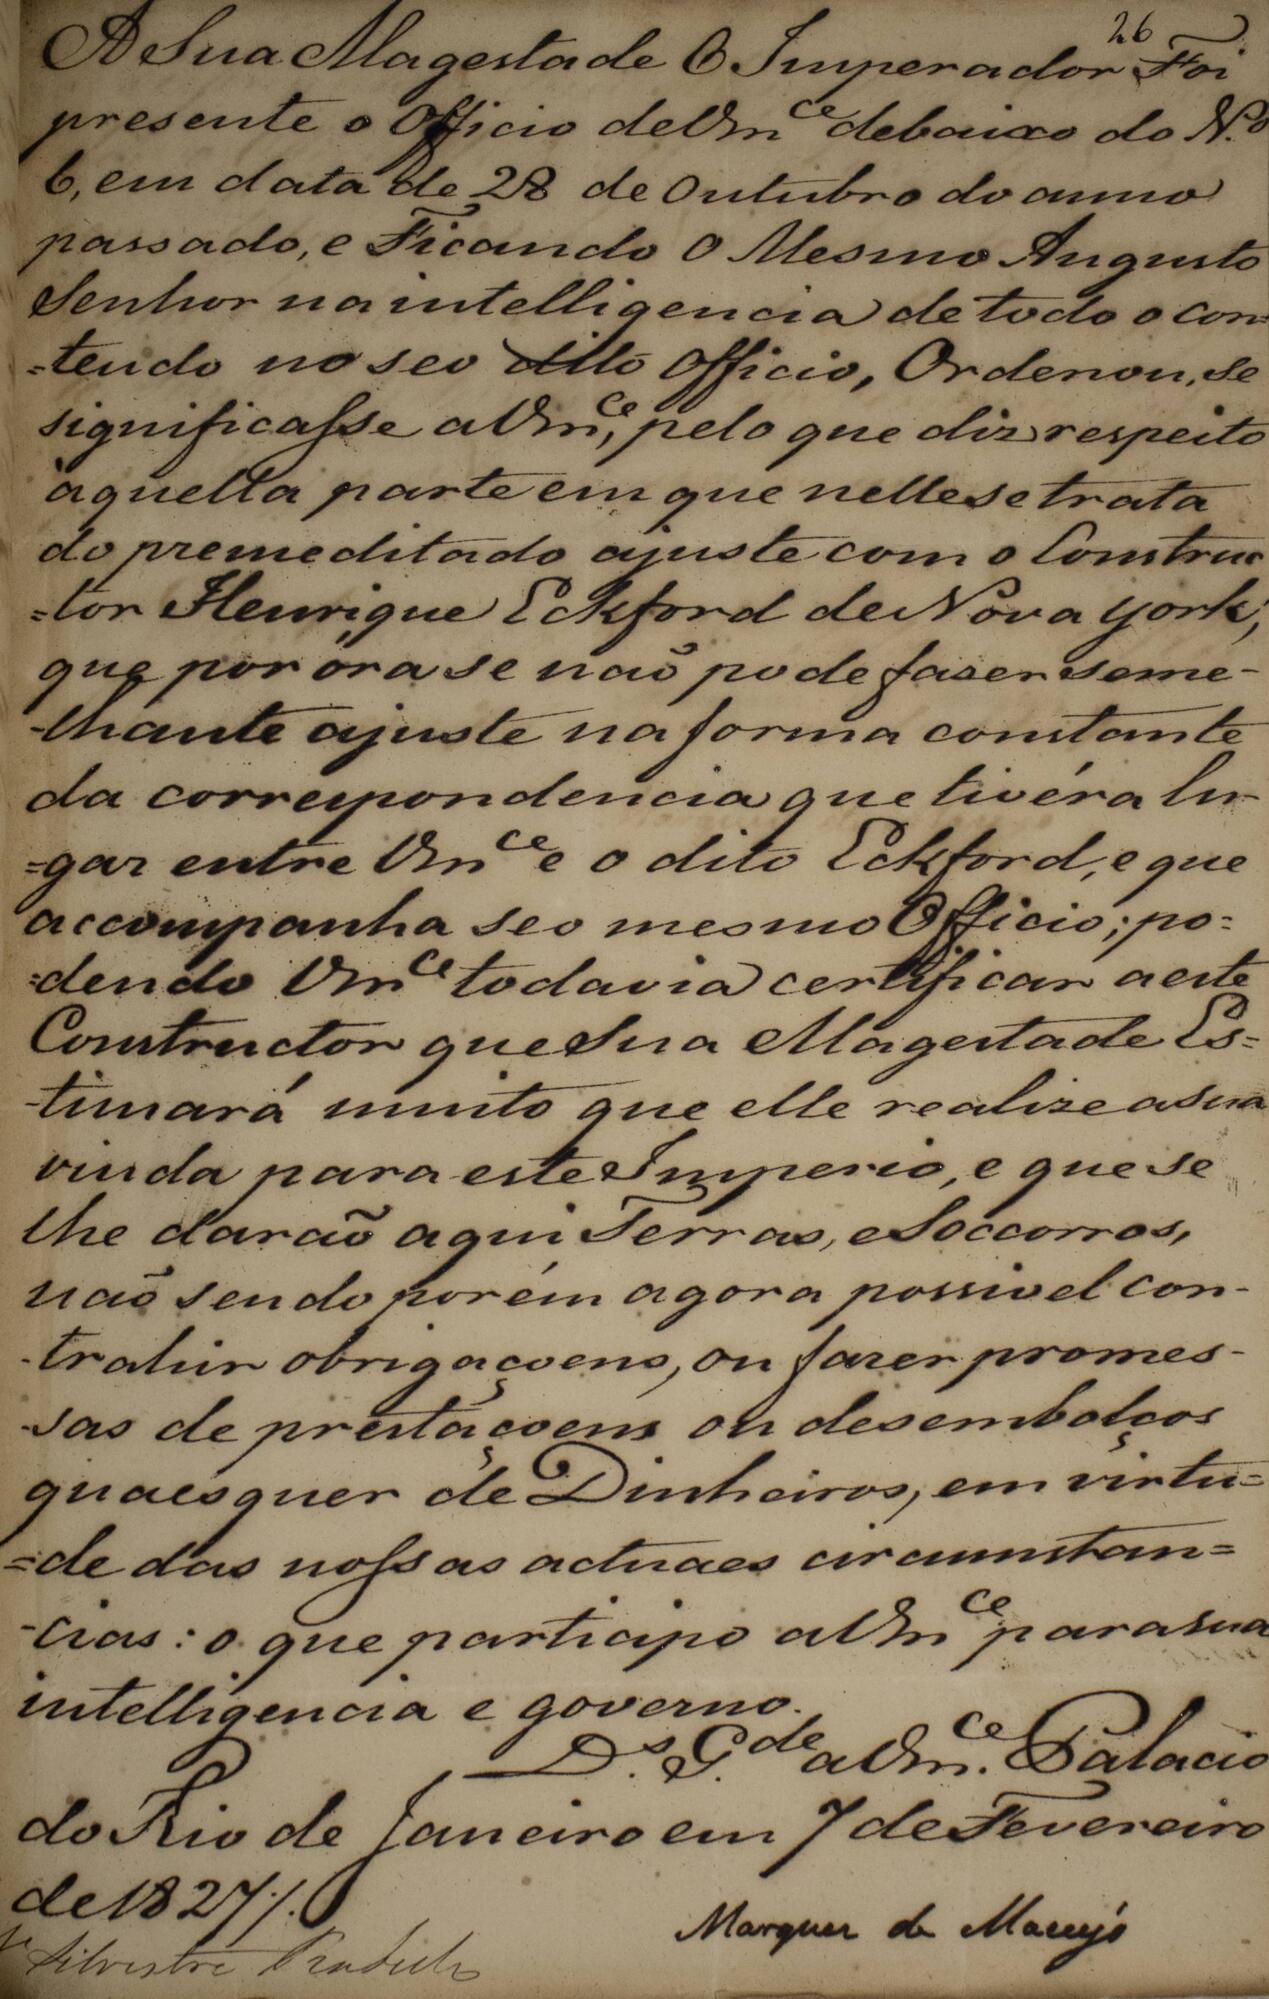 26
A Sua Magestade O Imperador Foi
presente o Officio de Vm.ce debaixo do N.o
6, em data de 28 de Outubro do anno
passado, e Ficando O Mesmo Augusto
Senhor na intelligencia de todo o con=
=tendo no seo dito Officio, Ordenou, se
significasse a Vm.ce, pelo que diz respeito
àquella parte em que nelle se trata
do premeditado ajuste com o Construc
=tor Henrique Eckford de Nova York;
que por óra se naõ pode fazer seme-
-lhante ajuste na forma constante
da correspondencia que tivéra lu-
=gar entre Vm.ce e o dito Eckford, e que
accompanha seo mesmo Officio; po=
=dendo Vm.ce todavia certificar a este
Constructor que Sua Magestade Es=
-timará muito que elle realize a sua
vinda para este Imperio, e que se
lhe daraõ aqui Terras, e Soccorros,
naõ sendo porém agora possivel con-
-trahir obrigaçoens, ou fazer promes-
-sas de prestaçoens ou desembolços
quaesquer de Dinheiros, em virtu=
=de das nossas actuaes circumstan=
-cias: o que participo a Vm.ce para sua
intelligencia e governo.
D.s G.de a Vm.ce Palacio
do Rio de Janeiro em 7 de Fevereiro
de 1827/.
Marquez de Maceyó
Silvestre Rebello